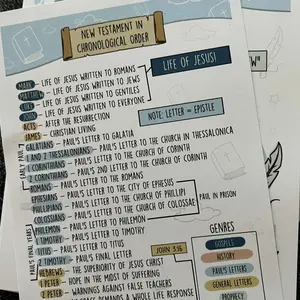 NEW TESTAMENT IN
CHRONOLOGICAL ORDER
MARK - LIFE OF JESUS WRITTEN TO ROMANS
MATTHEW - LIFE OF JESUS WRITTEN TO JEWS
LIFE OF JESUS WRITTEN TO GENTILES
JOHN - LIFE OF JESUS WRITTEN TO EVERYONE
LIFE OF JESUS!
ACTS - AFTER THE RESURRECTION
JAMES - CHRISTIAN LIVING
NOTE: LETTER = EPISTLE
EARLY PAUL
GALATIANS - PAUL'S LETTER TO GALATIA
1 AND 2 THESSALONIANS - PAUL'S LETTER TO THE CHURCH IN THESSALONICA
1 CORINTHIANS - PAUL'S LETTER TO THE CHURCH OF CORINTH
2 CORINTHIANS - PAUL'S 2ND LETTER TO THE CHURCH OF CORINTH
ROMANS - PAUL'S LETTER TO THE ROMANS
EPHESIANS - PAUL'S LETTER TO THE CITY OF EPHESUS
PHILIPPIANS - PAUL'S LETTER TO THE CHURCH OF PHILLIPI
COLOSSIANS - PAUL'S LETTER TO THE CHURCH OF COLOSSAE
PAUL IN PRISON
PHILEMON - PAUL'S LETTER TO PHILEMON
PAUL'S FINAL YEARS
1 TIMOTHY - PAUL'S LETTER TO TIMOTHY
TITUS - PAUL'S LETTER TO TITUS
2 TIMOTHY - PAUL'S FINAL LETTER
JOHN 3:16
HEBREWS - THE SUPERIORITY OF JESUS CHRIST
1 PETER - HOPE IN THE MIDST OF SUFFERING
2 PETER - WARNINGS AGAINST FALSE TEACHERS
GRACE DEMANDS A WHOLE LIFE RESPONSE
GENRES
GOSPELS
HISTORY
PAUL'S LETTERS
GENERAL LETTERS
PROPHECY
W"